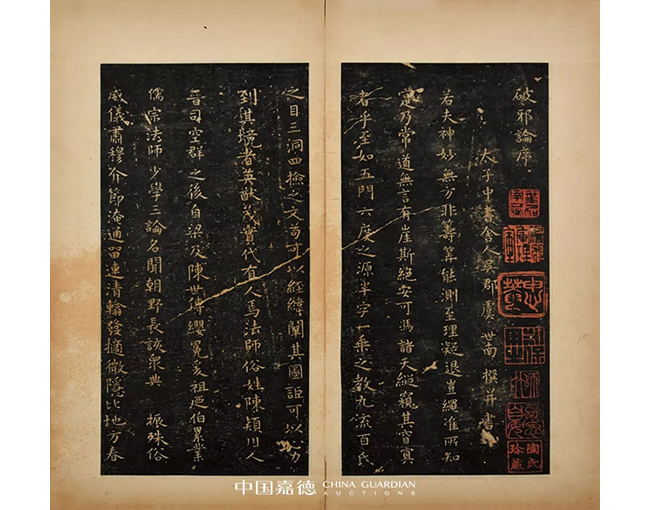 破邪論序
太子中書舍人吳郡虞世南撰并書
若夫神妙無方非籌筭能測至理凝邈豈繩准所知
寔乃常道無言有崖斯絕安可馮諸天縱窺其窅冥
者乎至如五門六度之源半字一乘之教九流百氏
之目三洞四檢之文苟可以經緯闡其圖詎可以心力
到其境者英猷茂實代有人焉法師俗姓陳潁川人
晉司空群之後自梁及陳世傳纓冕爰祖迺伯累業
儒宗法師少學三論名聞朝野長該眾典 振殊俗
威儀肅穆介節淹通留連清翰發擿微隱比地方春
中国嘉德 CHINA GUARDIAN
AUCTIONS